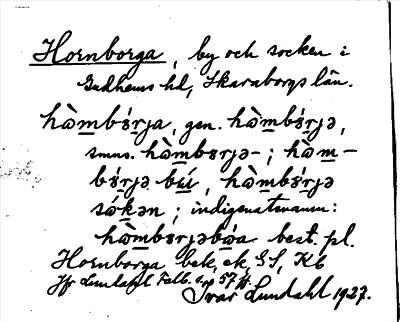 Hornborga, by och socken i
Gudhems hd, Skaraborgs län.
hò̀mbɤ́rja, gen. hò̀mbɤ́rjə,
smns. hò̀mbɤrjə- ; hò̀m-
bɤ́rjə bú́, hò̀mbɤ́rjə
sókən ; indigenatsnamn:
hò̀mbɤrjəbóa best. pl.
Hornborga bek, ek, GS, Kb
Jfr Lundahl Falb. s. 57 ff.
Ivar Lundahl 1927.